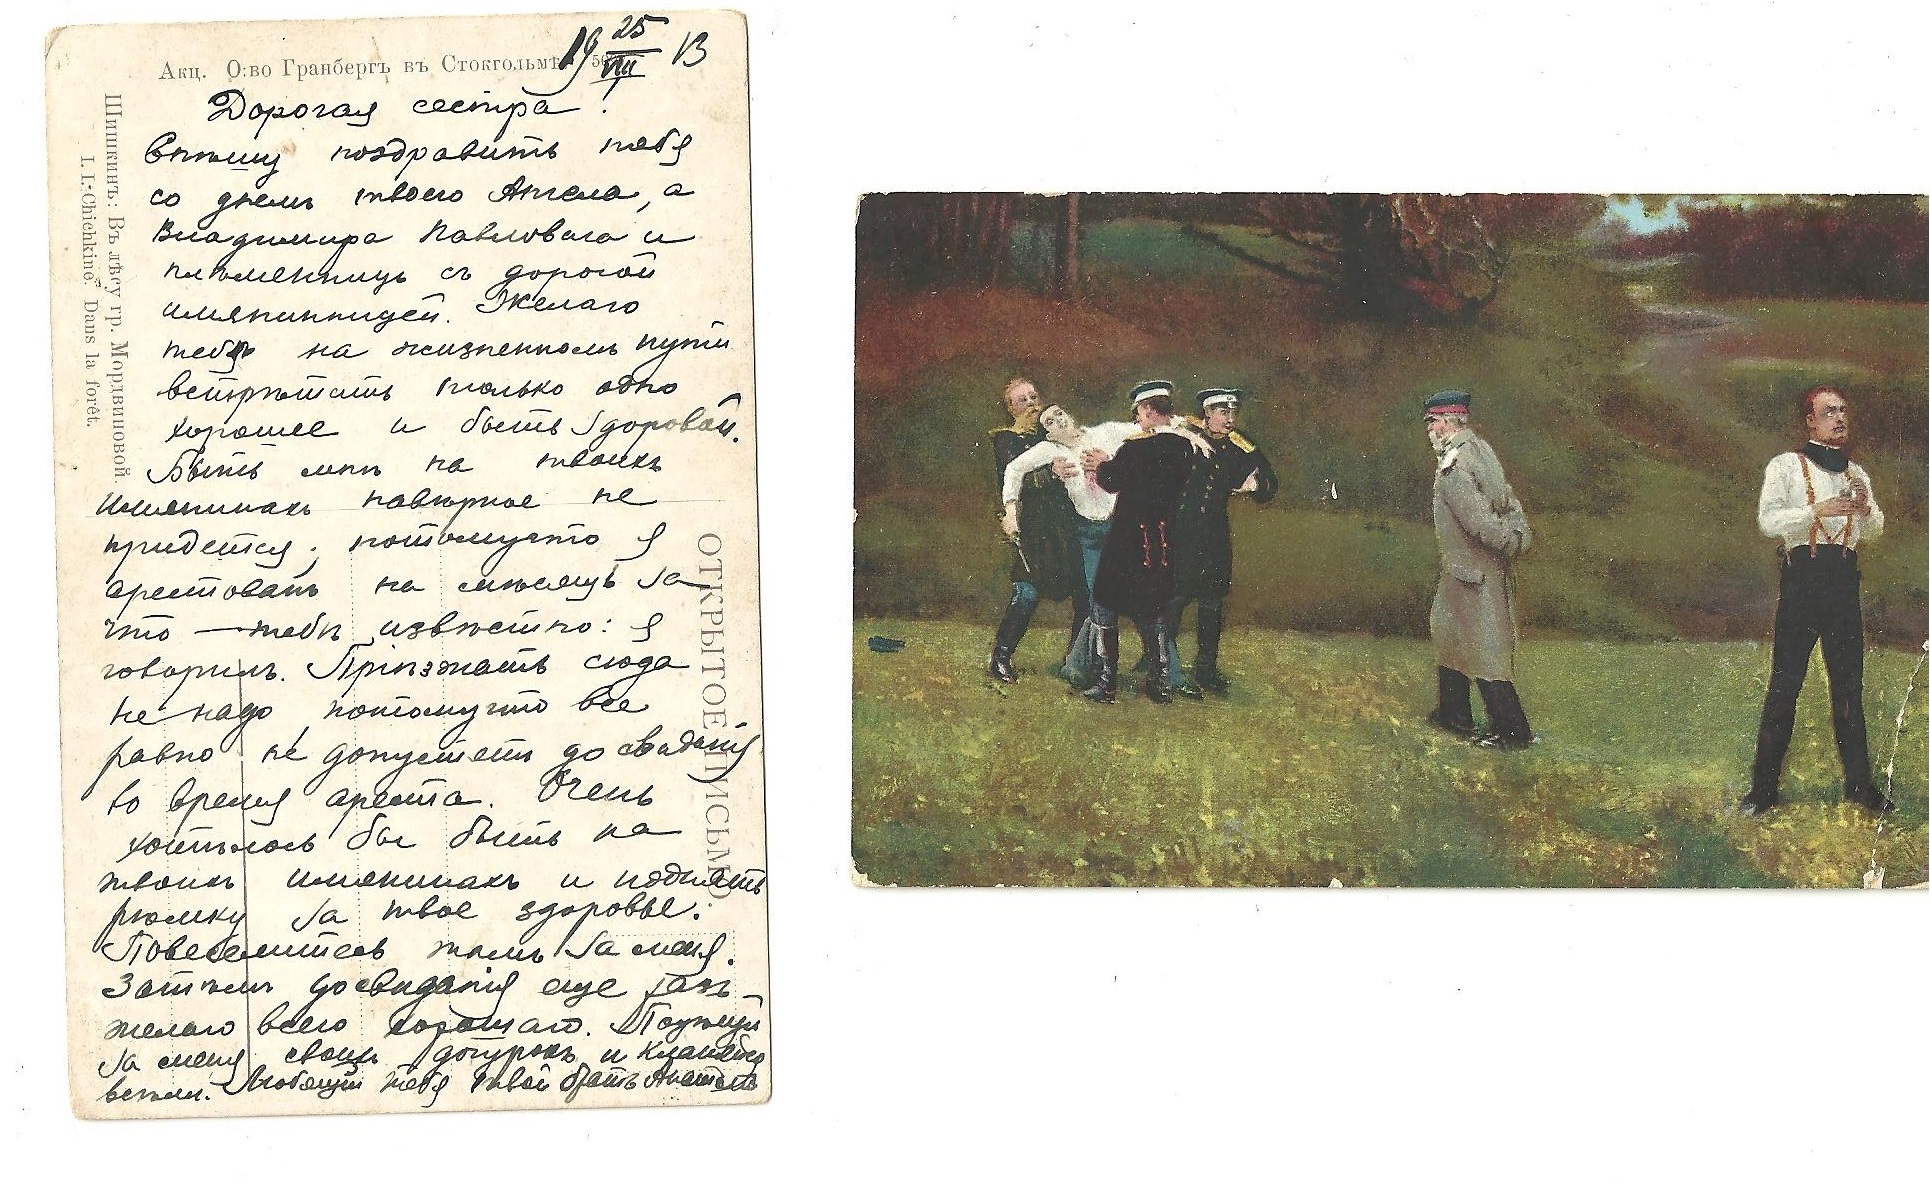 Акц. О:во Гранбергъ въ Стокгольмѣ
19 25/VIII 13
Шишкинъ: Въ лѣсу гр. Мордвиновой.
I. I. Chichkine. Dans la forêt.
ОТКРЫТОЕ ПИСЬМО.
Дорогая сестра!
Спѣшу поздравить тебя
со днемъ твоего Ангела, а
Владимира Павловича и
племянницъ съ дорогой
имянинницей. Желаю
тебѣ на жизненномъ пути
встрѣтать только одно
хорошее и быть здоровой.
Быть мнѣ на твоихъ
имянинахъ навѣрное не
придется, потомучто я
арестованъ на мѣсяцъ за
что — тебѣ извѣстно: я
говорилъ. Пріѣзжать сюда
не надо потомучто все
равно не допустятъ до свиданія
во время ареста. Очень
хотѣлось бы быть на
твоихъ имянинахъ и поднять
рюмку за твое здоровье.
Повеселитесь тамъ за меня.
Затѣмъ досвиданія еще разъ
желаю всего хорошаго. Поцѣлуй
за меня своихъ дочурокъ и кланяйся
всѣмъ. Любящій тебя твой братъ Анатолій